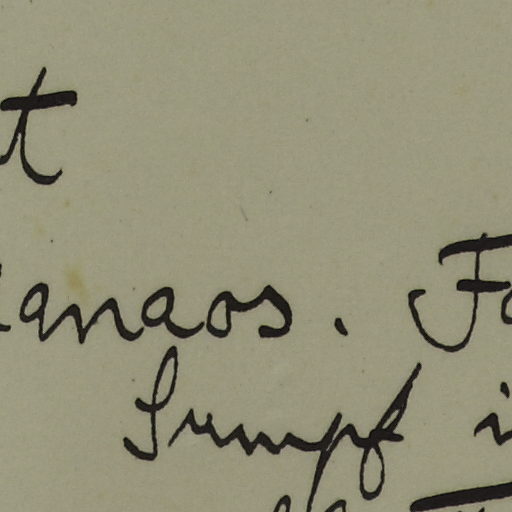 t
anaos. Fa
Sumpf i